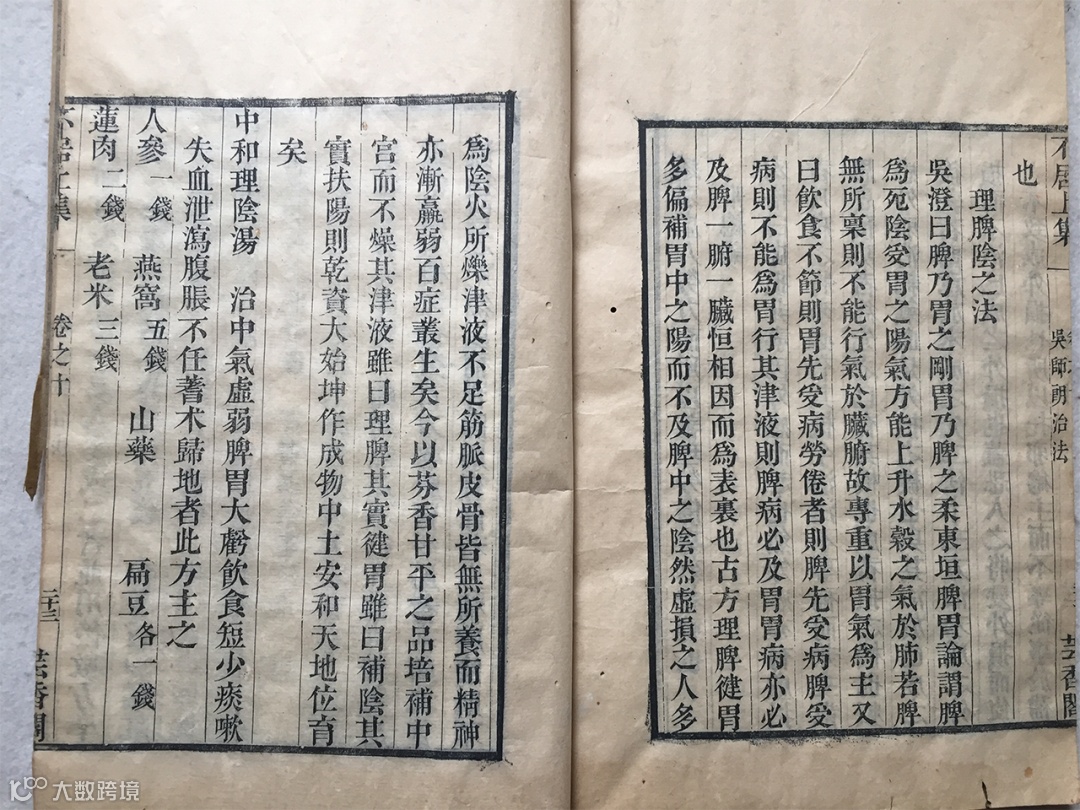 不居上集
吳師朗治法
芸香閣
也
理脾陰之法
吳澄曰脾乃胃之剛胃乃脾之柔東垣脾胃論謂脾
為死陰受胃之陽氣方能上升水穀之氣於肺若脾
無所稟則不能行氣於臟腑故專重以胃氣為主又
曰飲食不節則胃先受病勞倦者則脾先受病脾受
病則不能為胃行其津液則脾病必及胃胃病亦必
及脾一腑一臟恒相因而為表裏也古方理脾健胃
多偏補胃中之陽而不及脾中之陰然虛損之人多
為陰火所爍津液不足筋脈皮骨皆無所養而精神
亦漸羸弱百症叢生矣今以芬香甘平之品培補中
宮而不燥其津液雖曰理脾其實健胃雖曰補陰其
實扶陽則乾資大始坤作成物中土安和天地位育
矣
中和理陰湯 治中氣虛弱脾胃大虧飲食短少痰嗽
失血泄瀉腹脹不任蓍术歸地者此方主之
人參一錢 燕窩五錢 山藥 扁豆各一錢
蓮肉二錢 老米三錢
不居上集 卷之十 二十三 芸香閣
大数跨境